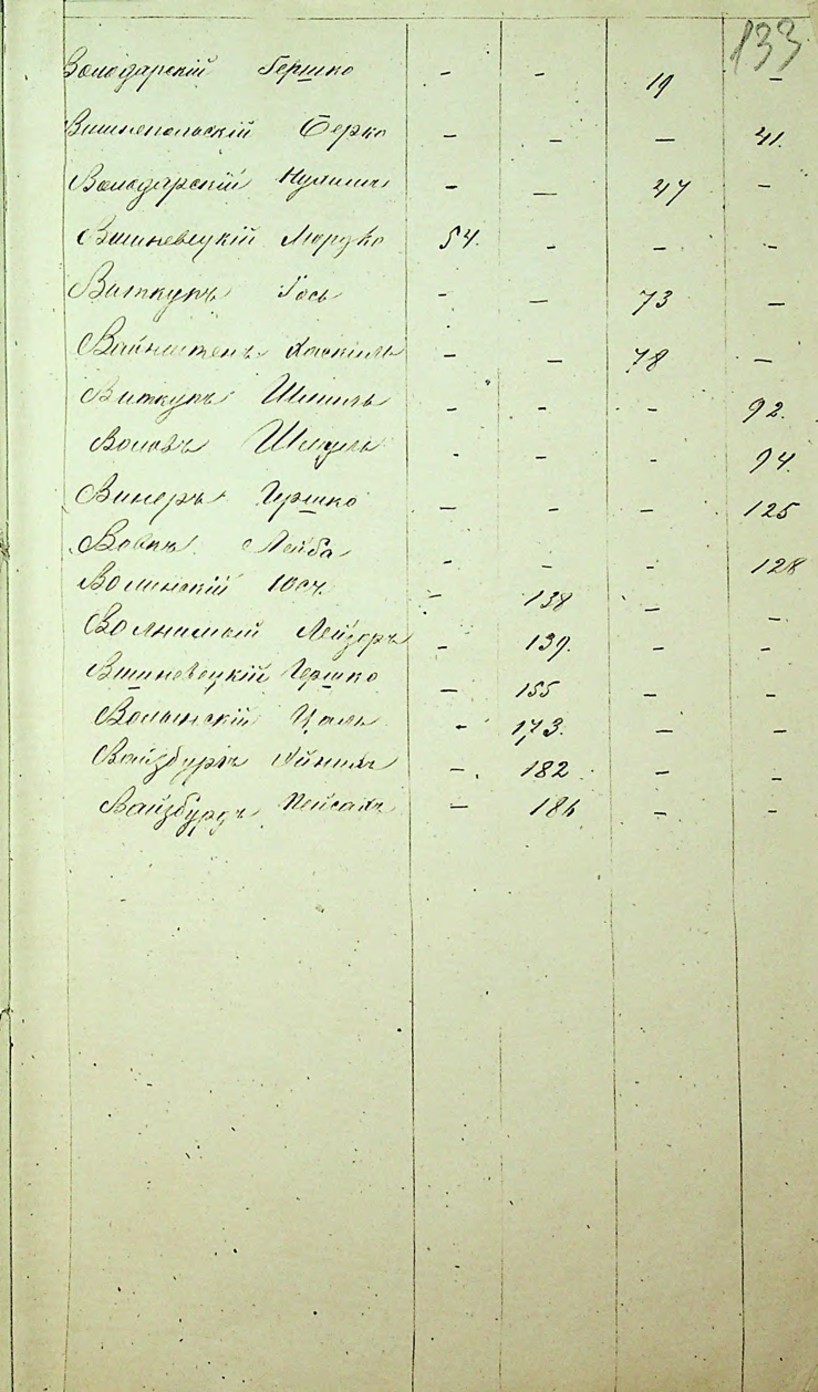 133
Володарскій Гершко - - 19 -
Вишнепольскій Берко - - - 41.
Володарскій - - 47 -
Вишневецкій Мордко 54. - - -
Виткупъ Іось - - 73 -
Вайнштенъ Хаскиль - - 78 -
Виткупъ Шмиль - - - 92.
Шмуль - - - 94.
Винеръ Гершко - - - 125
Вовкъ Лейба - - - 128
Волинскій Юсь - 138 - -
Лейзоръ - 139. - -
Вишневецкій Гершко - 155 - -
Волынскій Цаль - 173. - -
Вайзбургъ - 182 - -
Вайзбурдъ Пейсахъ - 186 - -